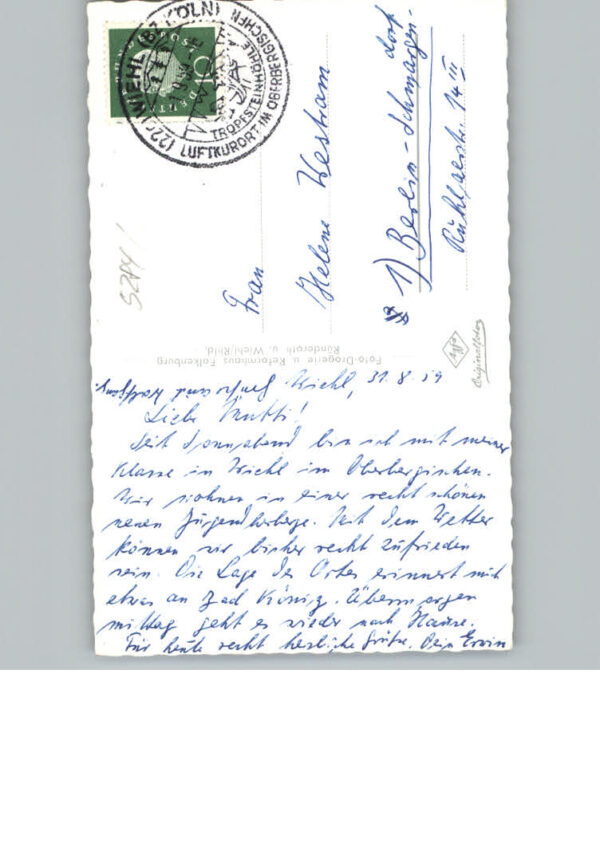 (22c) WIEHL (BZ KÖLN)
TROPFSTEINHÖHLE
LUFTKURORT IM OBERBERGISCHEN
DEUTSCHE
5284/
Frau
Helene Westram
1) Berlin-Schmargen-
dorf
Rühlaerstr. 14 III
Foto-Drogerie u. Reformhaus Falkenburg
Ründeroth u. Wiehl/Rhld.
Agfa
Originalfoto
Wiehl, 31.8.59
Liebe Mutti!
Seit Sonnabend bin ich mit meiner
Klasse in Wiehl im Oberbergischen.
Wir wohnen in einer recht schönen
neuen Jugendherberge. Mit dem Wetter
können wir bisher recht zufrieden
sein. Die Lage des Ortes erinnert mich
etwas an Bad König. Übermorgen
mittag geht es wieder nach Hause.
Für heute recht herzliche Grüße. Dein Erwin